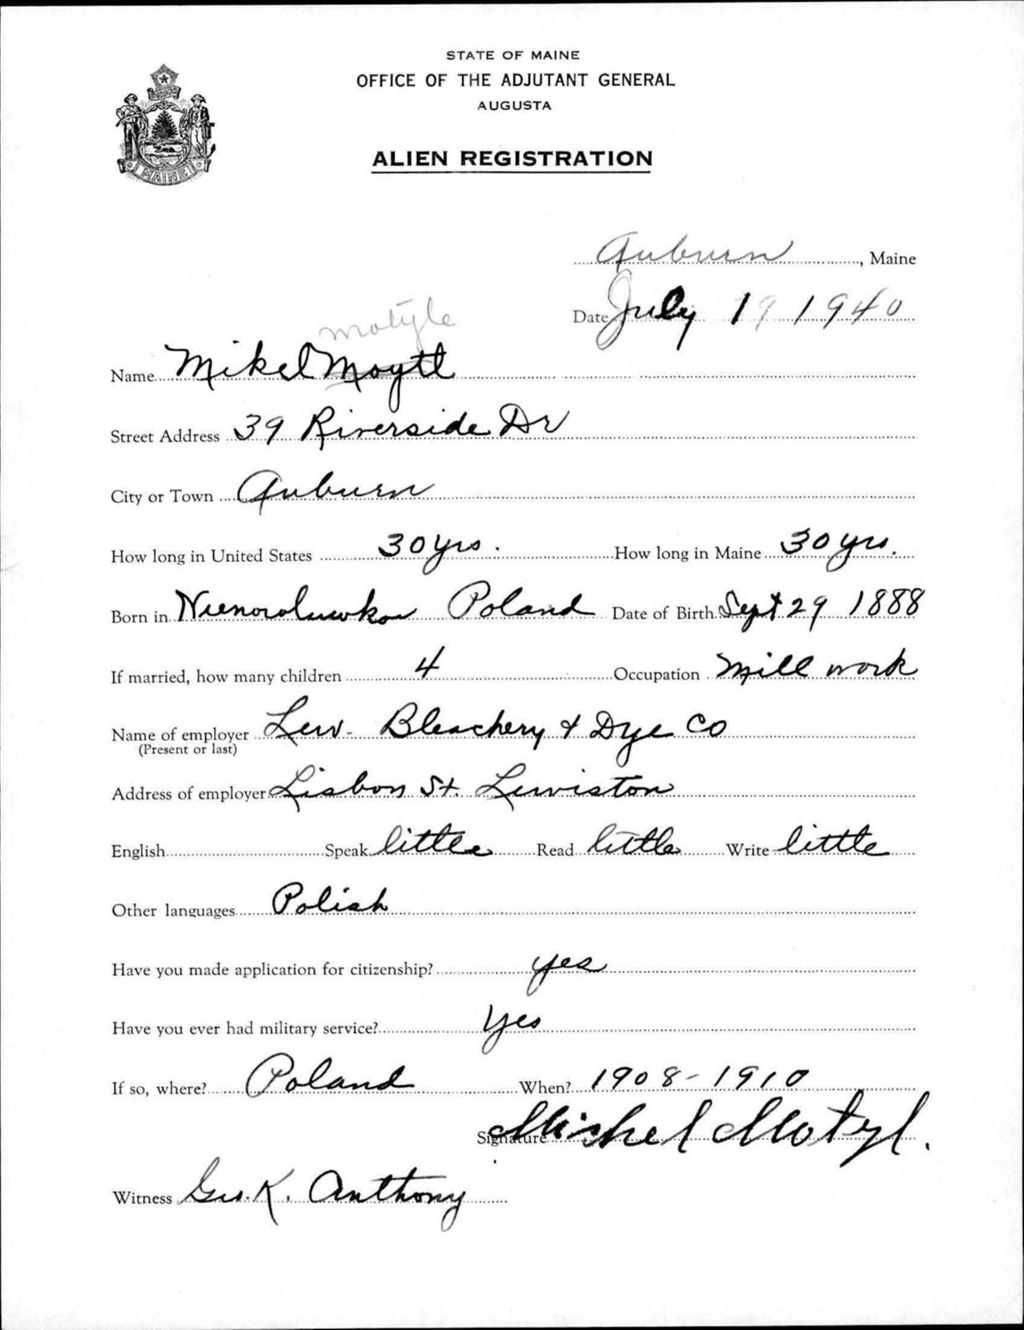 STATE OF MAINE
OFFICE OF THE ADJUTANT GENERAL
AUGUSTA
ALIEN REGISTRATION
MAINE
Auburn, Maine
Date July 19 1940
Motyle
Name Mikel Moytl
Street Address 39 Riverside Dr
City or Town Auburn
How long in United States 30 yrs. How long in Maine 30 yrs.
Born in Poland Date of Birth Sept 29 1888
If married, how many children 4 Occupation Mill work
Name of employer Lew. Bleachery & Dye Co
(Present or last)
Address of employer Lisbon St. Lewiston
English Speak little Read little Write little
Other languages Polish
Have you made application for citizenship? yes
Have you ever had military service? Yes
If so, where? Poland When? 1908-1910
Signature Michel Motyl.
Witness Geo. K. Anthony